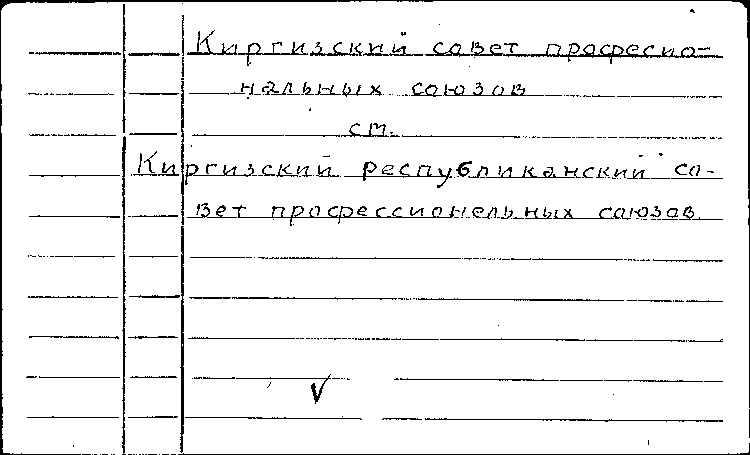 Киргизский совет професио-
нальных союзов
см.
Киргизский республиканский со-
вет профессиональных союзов